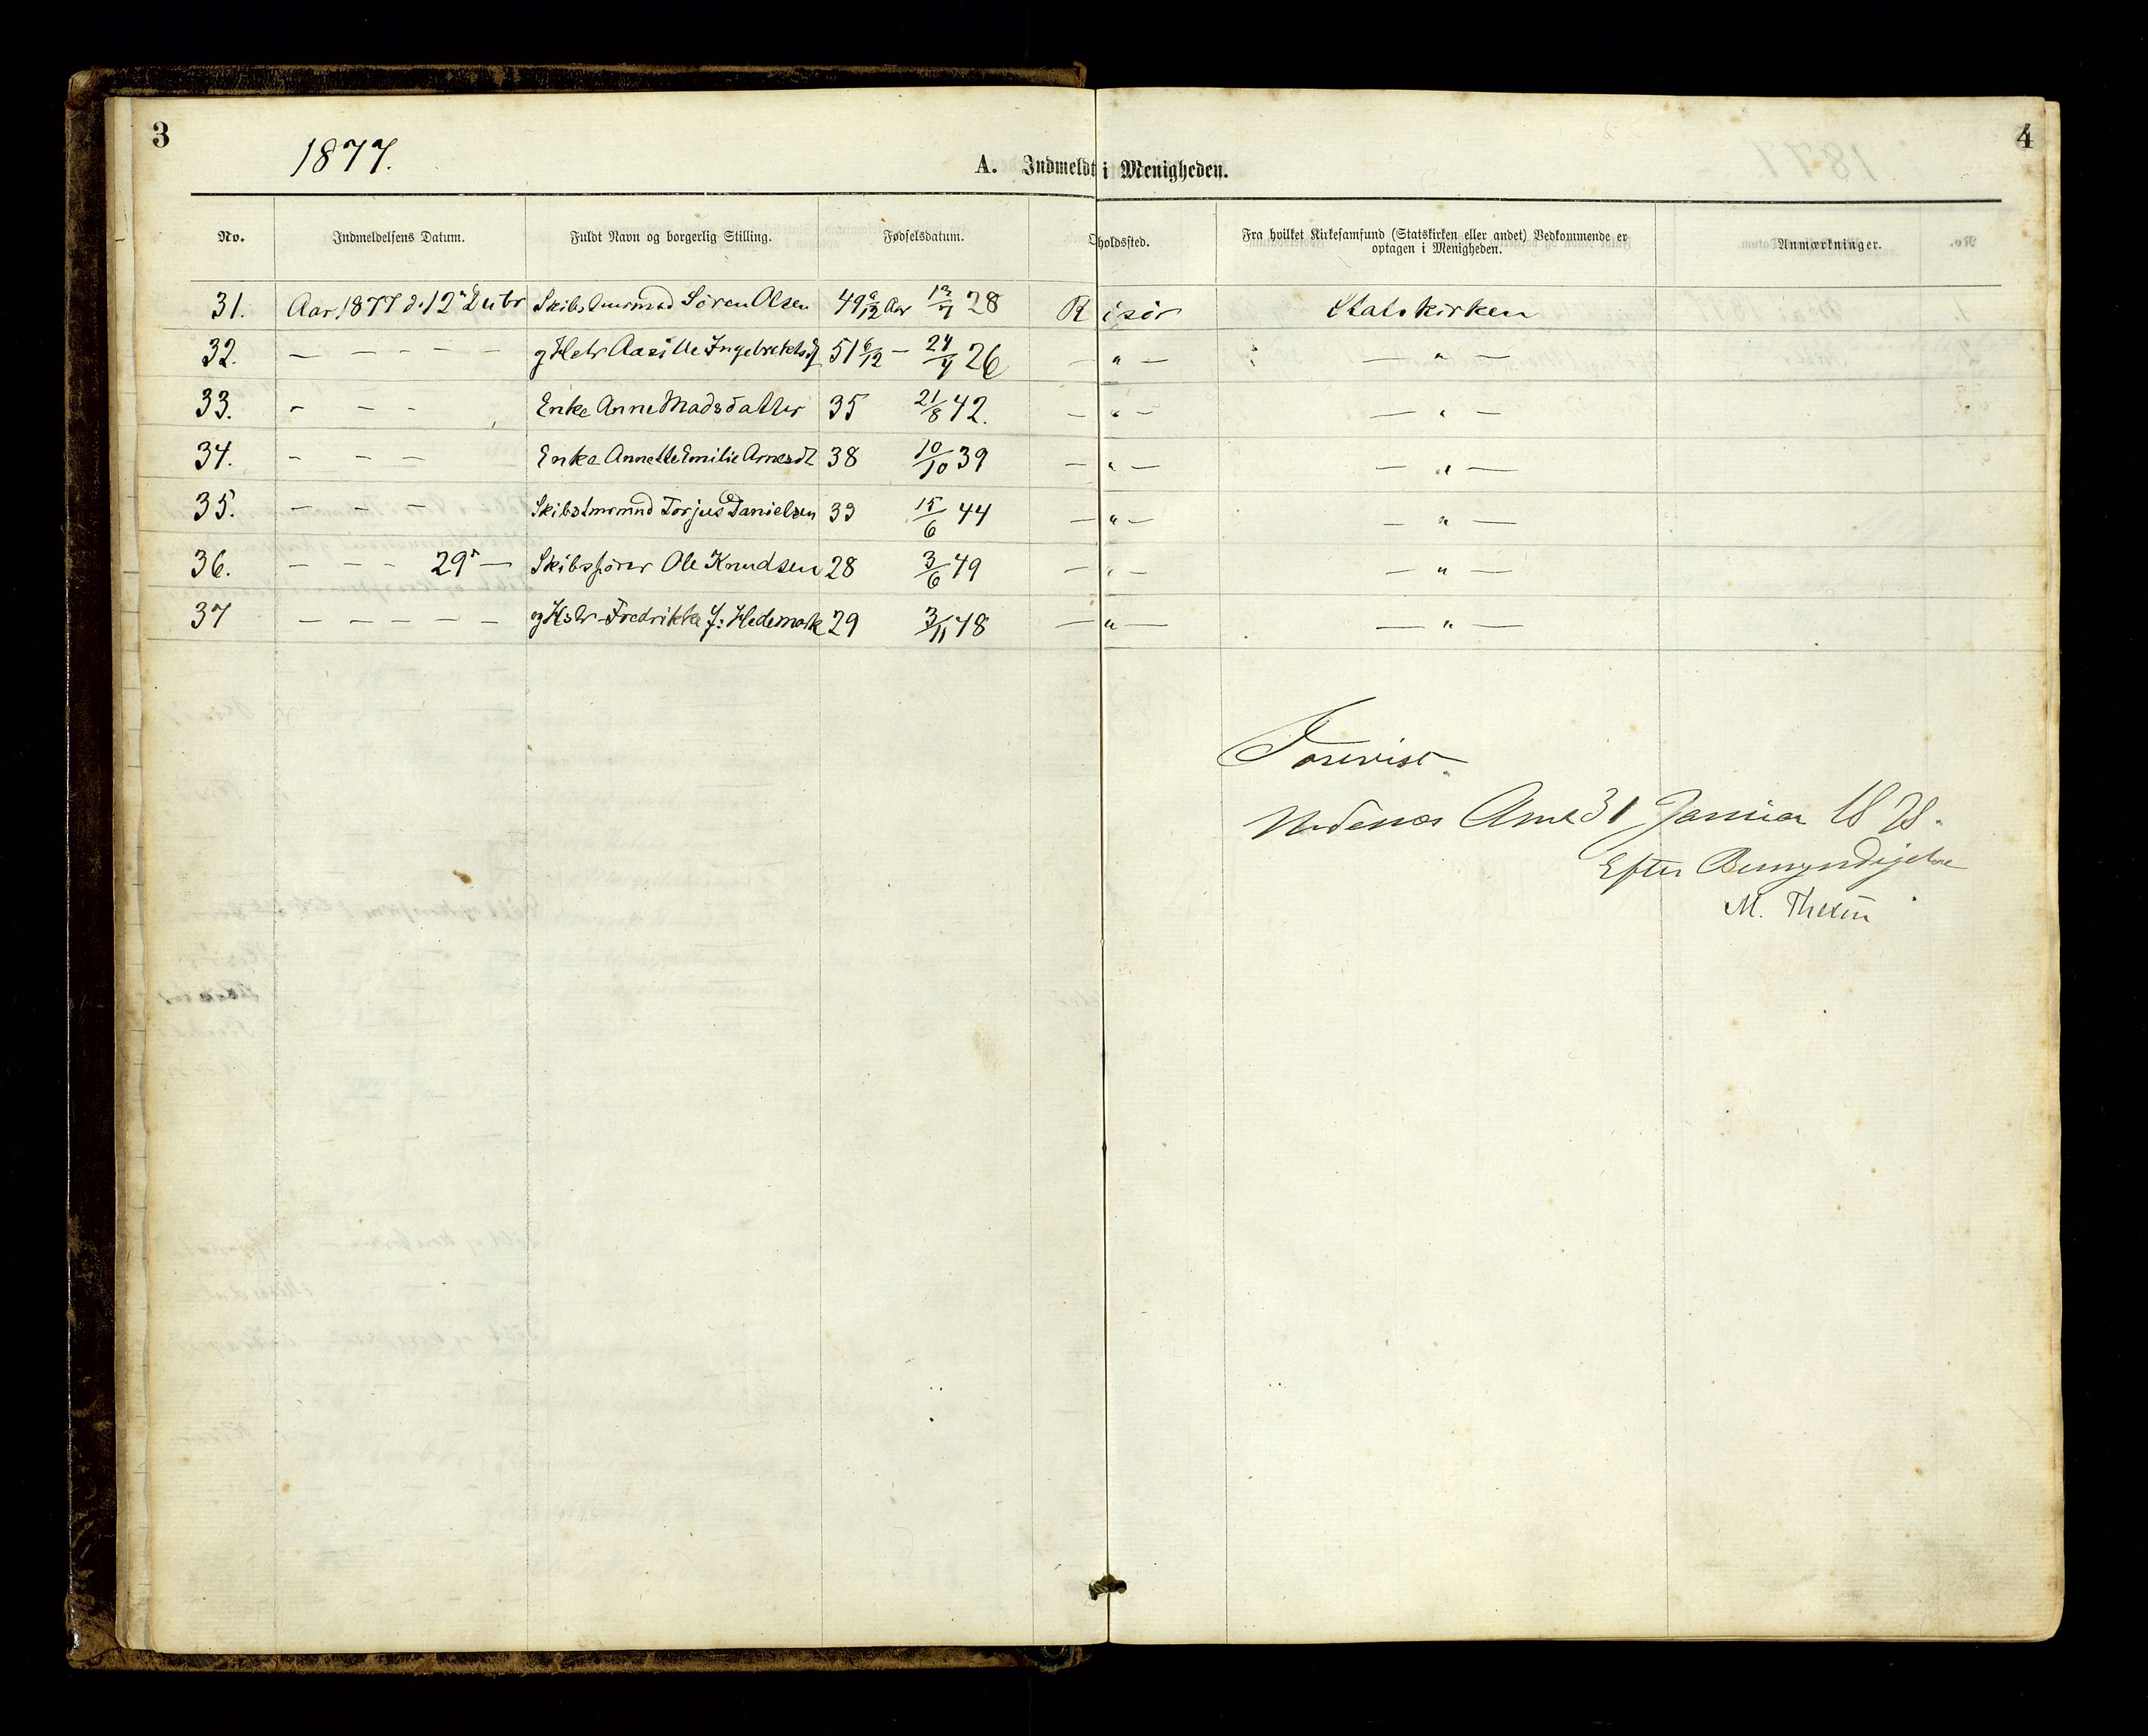 3
4
1877.
A. Indmeldt i Menigheden.
No. Indmeldelsens Datum. Fuldt Navn og borgerlig Stilling. Fødselsdatum. Opholdssted. Fra hvilket Kirkesamfund (Statskirken eller andet) Vedkommende er optagen i Menigheden. Anmærkninger.
31. Aar 1877 d. 12 Skibstmrmnd Sören Olsen 49 6/12 Aar 28 Risör Statskirken
32. — — — — — — 51 6/12 — 26 — " — — " —
33. — — — Enke Anne Madsdatter 35 21/8 42. — " — — " —
34. — — — Enke Annette Emilie Arnesdt 38 10/10 39 — " — — " —
35. — — — Skibstmrmnd Torjus Danielsen 33 15/6 44 — " — — " —
36. — — — 29 — Skibsfører Ole Knudsen 28 3/6 49 — " — — " —
37 — — — — — — og Hstr Fredrikke J: Hedemark 29 3/11 48 — " — — " —
Forevist.
Nedenes Amt 31 Januar 1878.
Efter Bemyndigelse
M.